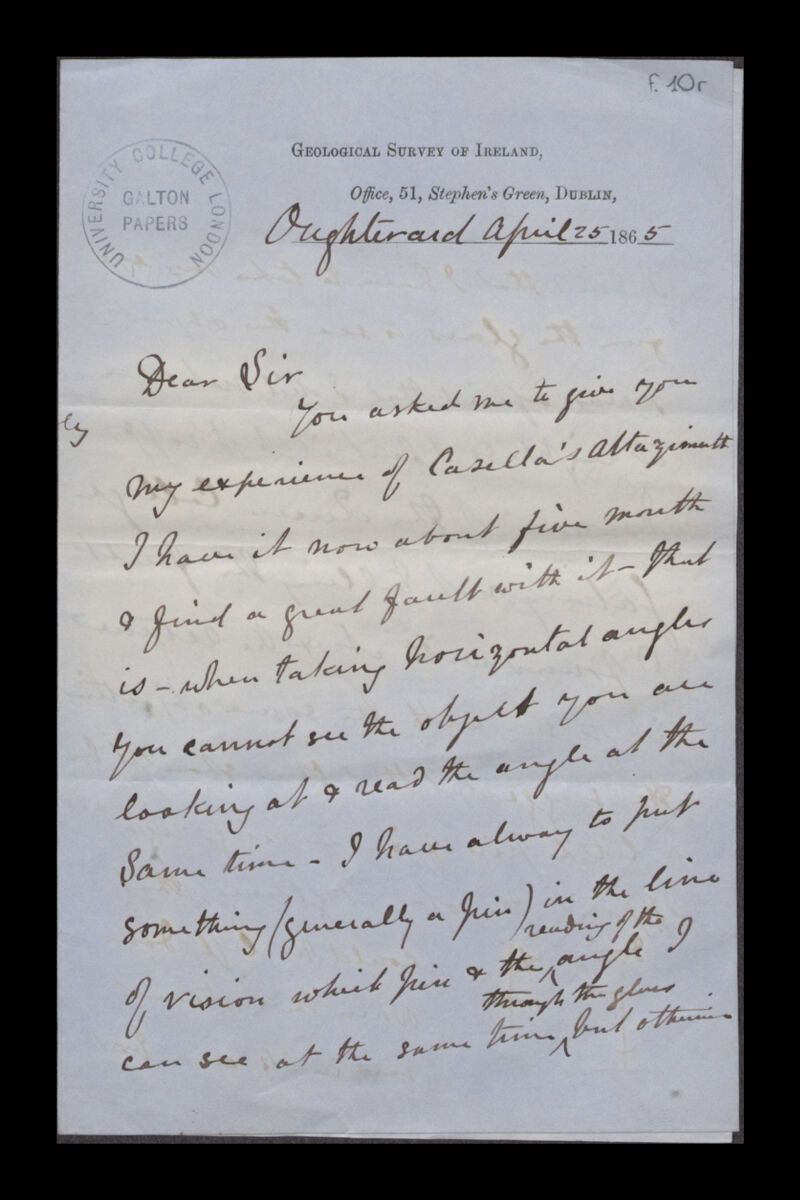 f. 10r
GEOLOGICAL SURVEY OF IRELAND,
Office, 51, Stephen's Green, DUBLIN,
UNIVERSITY COLLEGE LONDON
GALTON
PAPERS
Oughterard April 25 1865
Dear Sir
You asked me to give you
my experience of Casella's Altazimuth
I have it now about five month
& find a great fault with it - that
is - when taking horizontal angles
you cannot see the object you are
looking at & read the angle at the
same time - I have alway to put
something (generally a pin) in the line
of vision which pin & the reading of the angle I
can see at the same time through the glass but otherwise